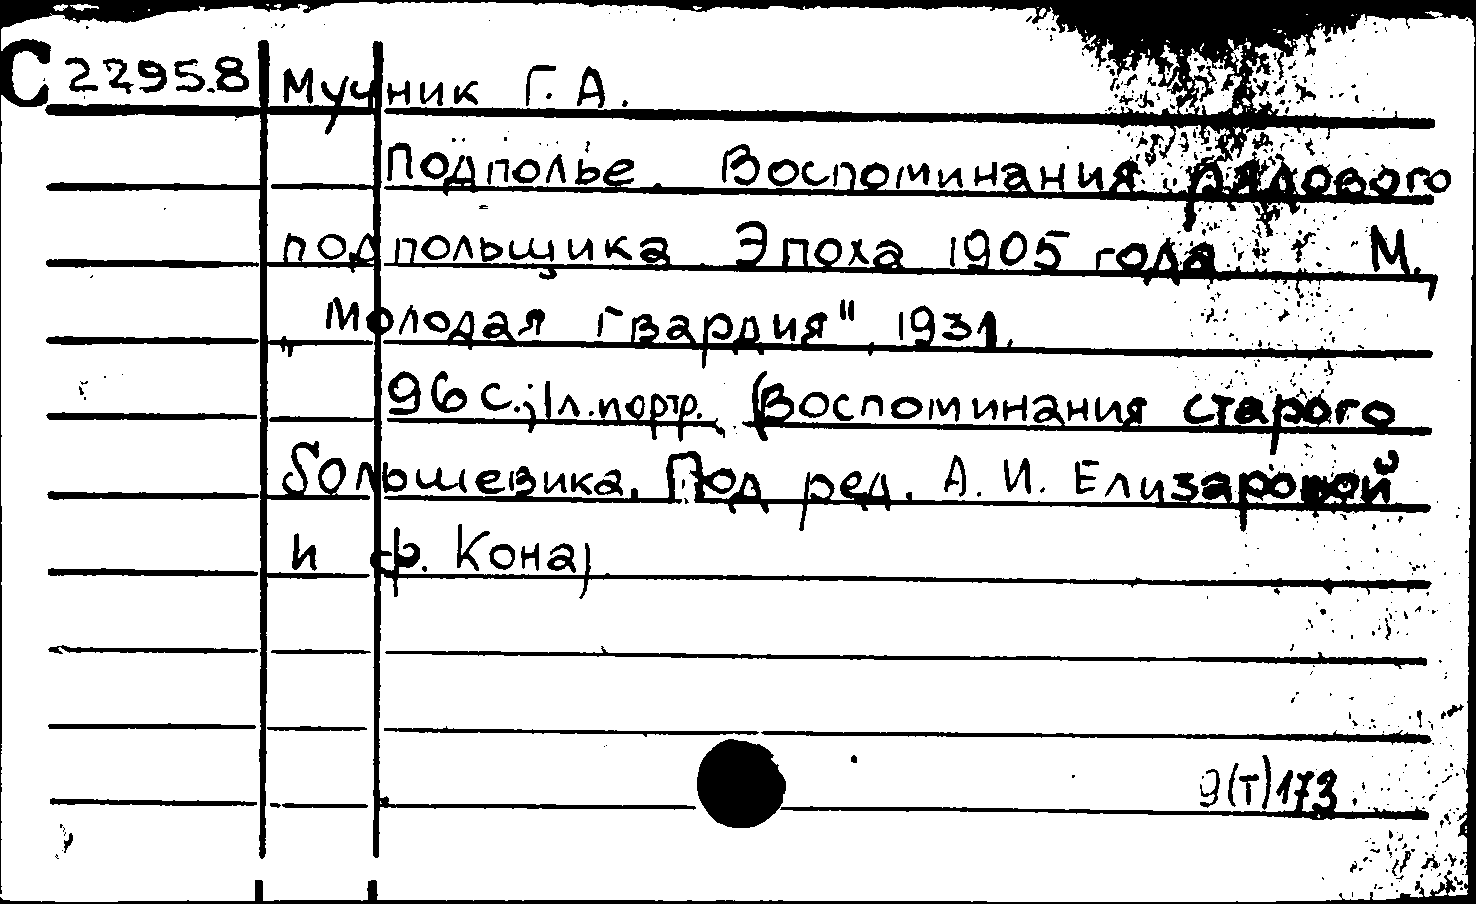 С 22958 Мучник Г. А.
Подполье. Воспоминания рядового
подпольщика. Эпоха 1905 года М.,
„Молодая Гвардия", 1931.
96 с.; 1 л. портр. (Воспоминания старого
большевика. Под ред. А. И. Елизаровой
и Ф. Кона)
9(Т)173